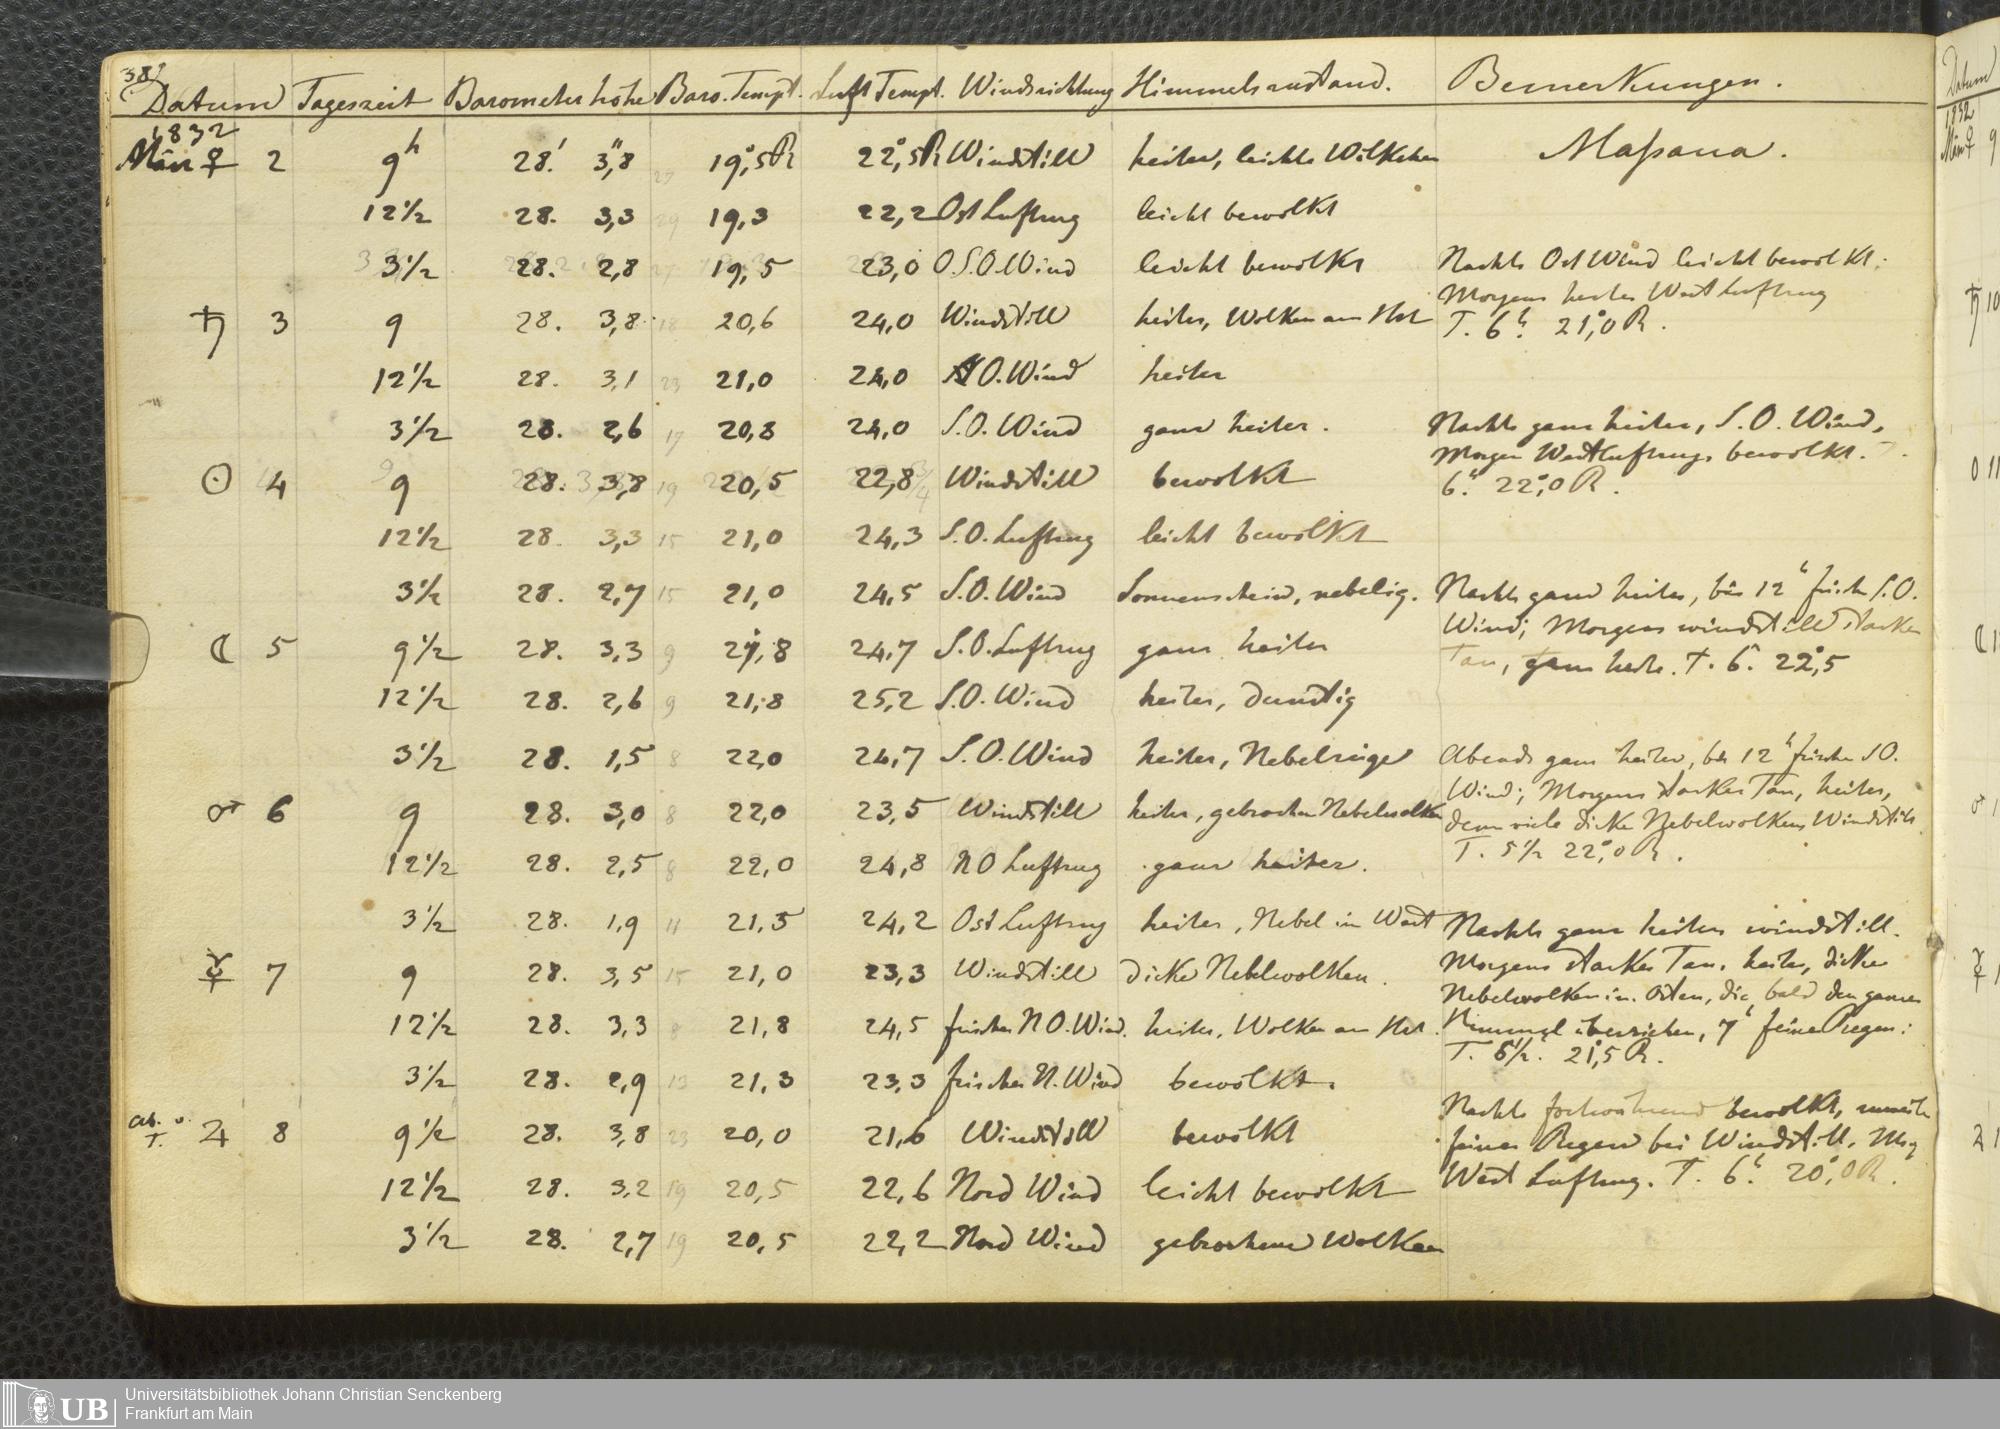 38)
Datum Tageszeit Barometer höhe Baro. Tempt. Luft Tempt. Windrichtung Himmelszustand. Bemerkungen.
1832
März ♀ 2 9h 28.' 3,"8 27 19,°5 R 22,°5 R Windstill heiter, leichte Wölkchen Massaua.
12½ 28. 3,3 29 19,3 22,2 Ost Luftzug leicht bewölkt
3½ 28. 2,8 27 19,5 23,0 O.S.O. Wind leicht bewölkt Nachts Ost Wind leicht bewölkt;
Morgens heiter West Luftzug
♄ 3 9 28. 3,8 18 20,6 24,0 Windstill heiter, Wolken am Hor T. 6h. 21,°0 R.
12½ 28. 3,1 23 21,0 24,0 O. Wind heiter
3½ 28. 2,6 17 20,8 24,0 S.O. Wind ganz heiter. Nachts ganz heiter, S.O. Wind,
Morgen West Luftzug, bewölkt. T.
☉ 4 9 28. 3,8 19 20,5 22,8 Windstill bewölkt 6h. 22,°0 R.
12½ 28. 3,3 15 21,0 24,3 S.O. Luftzug leicht bewölkt
3½ 28. 2,7 15 21,0 24,5 S.O. Wind Sonnenschein, nebelig. Nachts ganz heiter, bis 12h frischer S.O.
Wind; Morgens windstill starker
☾ 5 9½ 28. 3,3 9 21,8 24,7 S.O. Luftzug ganz heiter Tau, ganz heiter. T. 6h. 22,°5
12½ 28. 2,6 9 21,8 25,2 S.O. Wind heiter, dunstig
3½ 28. 1,5 8 22,0 24,7 S.O. Wind heiter, Nebelzüge Abends ganz heiter, bis 12h frischer SO.
Wind; Morgens starker Tau, heiter,
♂ 6 9 28. 3,0 8 22,0 23,5 Windstill heiter, gebrochen Nebelwolken dann viele dicke Nebelwolken, Windstill
12½ 28. 2,5 8 22,0 24,8 NO Luftzug ganz heiter. T. 5½ 22,°0 R.
3½ 28. 1,9 11 21,5 24,2 Ost Luftzug heiter, Nebel in West Nachts ganz heiter windstill.
☿ 7 9 28. 3,5 15 21,0 23,3 Windstill dicke Nebelwolken. Morgens starker Tau, heiter, dicke
Nebelwolken in Osten, die bald den ganzen
12½ 28. 3,3 8 21,8 24,5 frischer N O. Wind. heiter, Wolken am Hor. Himmel überziehen, 7h feiner Regen:
T. 6½. 21,°5 R.
3½ 28. 2,9 13 21,3 23,3 frischer N. Wind bewölkt.
Nachts fortwährend bewölkt,
♃ 8 9½ 28. 3,8 23 20,0 21,6 Windstill bewölkt feiner Regen bei Windstill, Morg
12½ 28. 3,2 19 20,5 22,6 Nord Wind leicht bewölkt West Luftzug. T. 6h. 20,°0 R.
3½ 28. 2,7 19 20,5 22,2 Nord Wind gebrochene Wolken
Datum
1832
März ♀ 9
♄ 10
☉ 11
☾ 1
♂ 1
☿ 1
♃ 1
UB Universitätsbibliothek Johann Christian Senckenberg
Frankfurt am Main